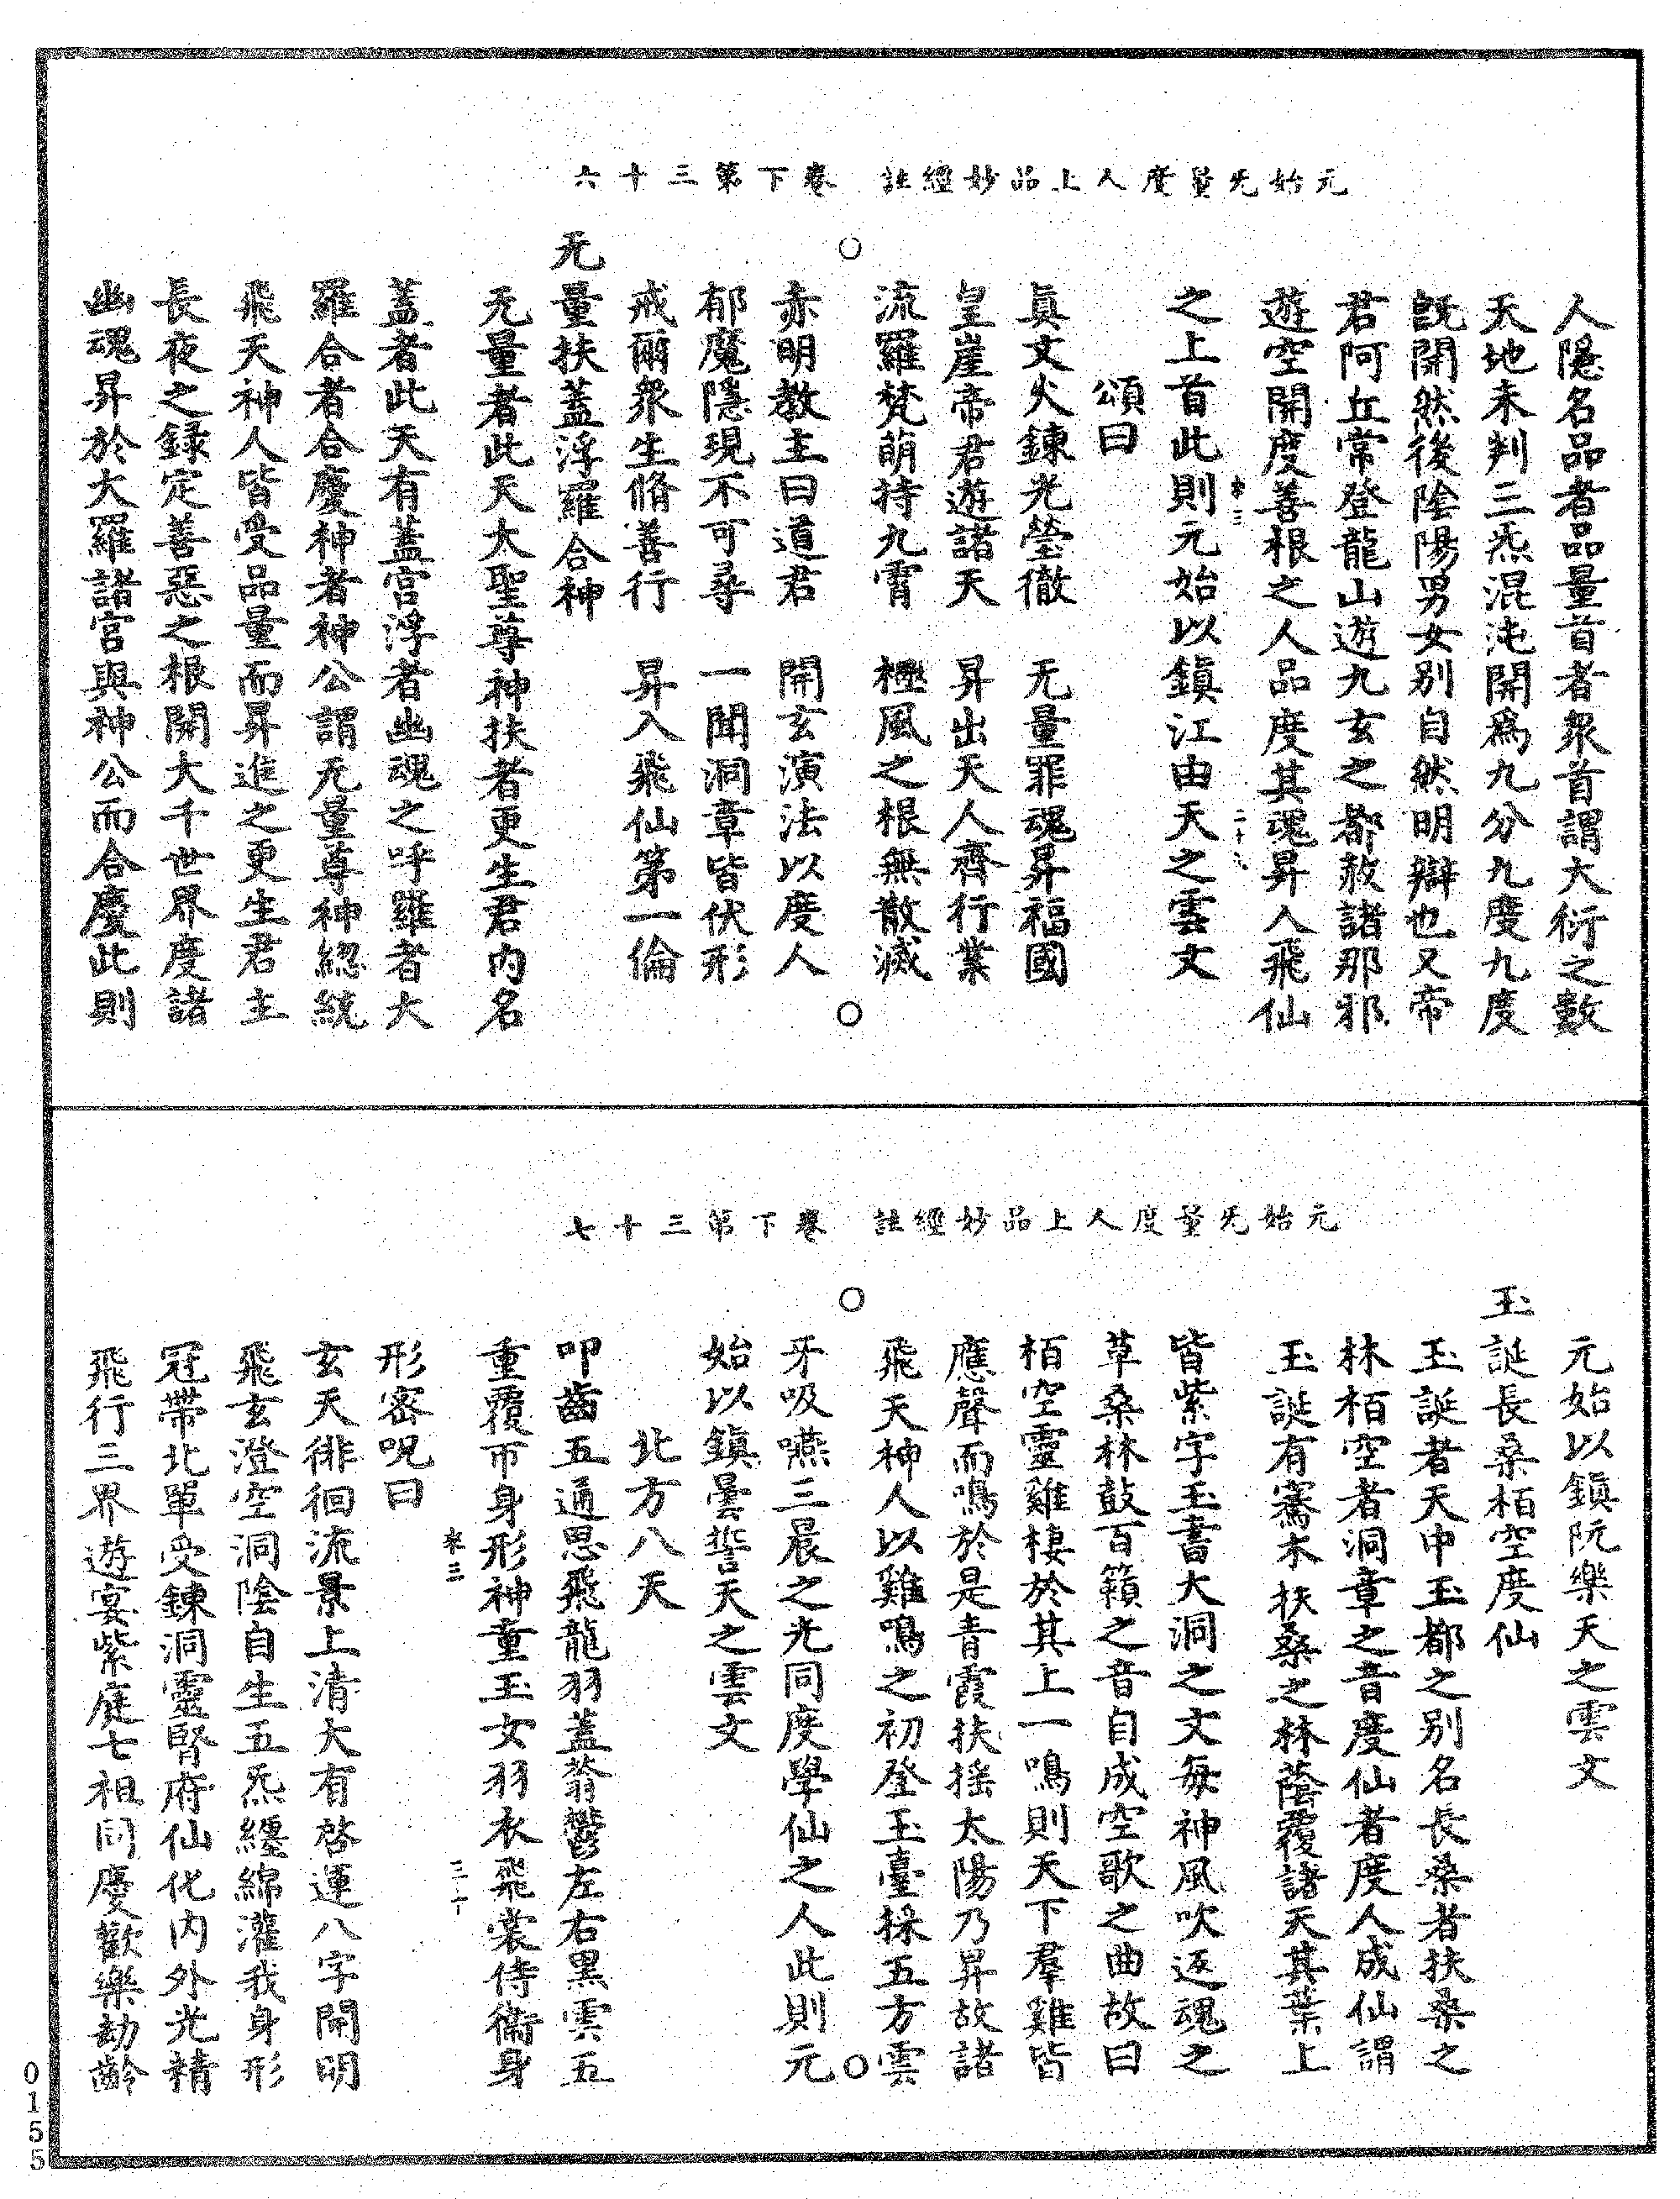 元始无量度人上品妙經註　卷下第三十六
人隱名品者品量首者衆首謂大衍之數
天地未判三炁混沌開爲九分九度九度
旣開然後陰陽男女別自然明辯也又帝
君阿丘常登龍山遊九玄之都敕諸那邪
遊空開度善根之人品度其魂昇入飛仙
之上首此則元始以鎮江由天之雲文
頌曰
眞文火鍊光瑩徹　无量罪魂昇福國
皇崖帝君遊諸天　昇出天人齊行業
流羅梵萌持九霄　極風之根無散滅
赤明教主曰道君　開玄演法以度人
郁魔隱現不可尋　一聞洞章皆伏形
戒爾衆生脩善行　昇入飛仙第一倫
无量扶蓋浮羅合神
无量者此天大聖尊神扶者更生君內名
蓋者此天有蓋宮浮者幽魂之呼羅者大
羅合者合慶神者神公謂无量尊神總統
飛天神人皆受品量而昇進之更生君主
長夜之録定善惡之根開大千世界度諸
幽魂昇於大羅諸宮與神公而合慶此則
元始无量度人上品妙經註　卷下第三十七
元始以鎮阮樂天之雲文
玉誕長桑栢空度仙
玉誕者天中玉都之別名長桑者扶桑之
林栢空者洞章之音度仙者度人成仙謂
玉誕有騫木扶桑之林蔭覆諸天其葉上
皆紫字玉書大洞之文每神風吹返魂之
草桑林鼓百籟之音自成空歌之曲故曰
栢空靈雞棲於其上一鳴則天下羣雞皆
應聲而鳴於是青霞扶搖太陽乃昇故諸
飛天神人以雞鳴之初登玉臺採五方雲
牙吸嚥三晨之光同度學仙之人此則元
始以鎮曇誓天之雲文
北方八天
叩齒五通思飛龍羽蓋蓊鬱左右黑雲五
重覆帀身形神童玉女羽衣飛裳侍衞身
形密呪曰
玄天徘徊流景上清大有啓運八字開明
飛玄澄空洞陰自生五炁纏綿灌我身形
冠帶北單受鍊洞靈腎府仙化內外光精
飛行三界遊宴紫庭七祖同慶歡樂劫齡
0155